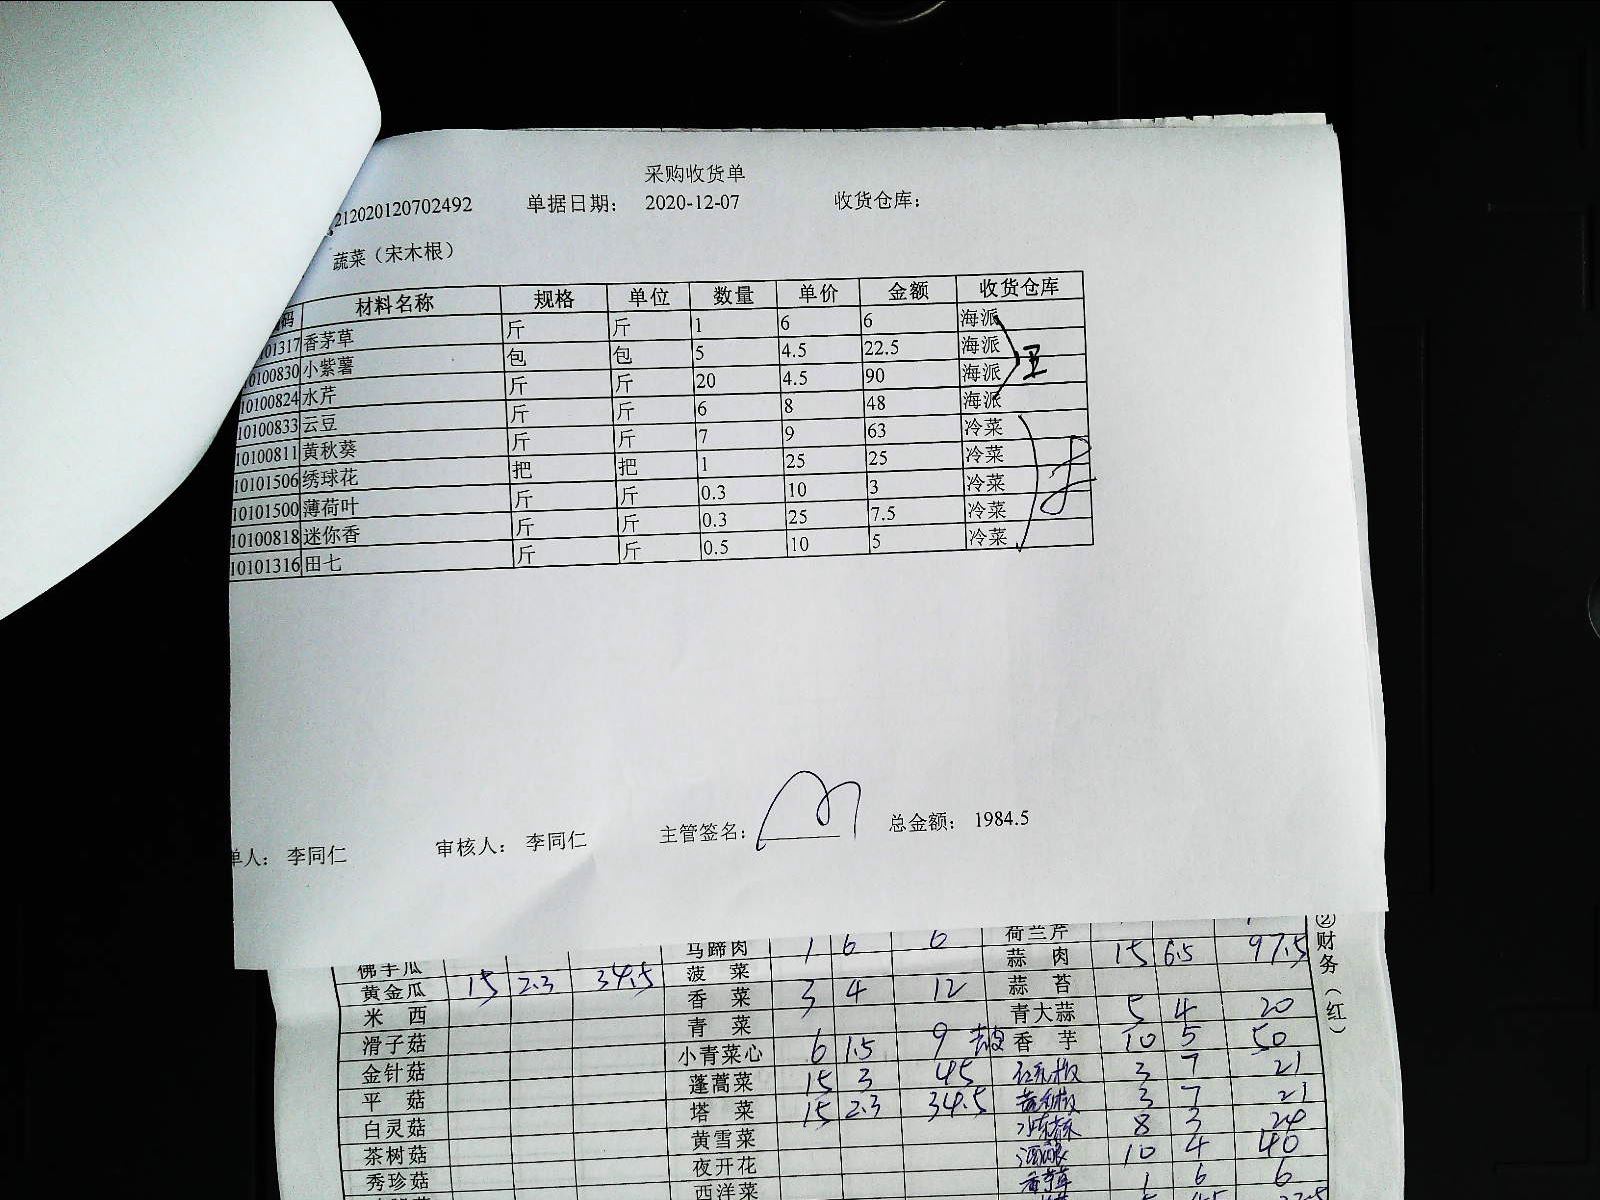 采购收货单
212020120702492 单据日期： 2020-12-07 收货仓库：
蔬菜（宋木根）
码 材料名称 规格 单位 数量 单价 金额 收货仓库
01317 香茅草 斤 斤 1 6 6 海派
0100830 小紫薯 包 包 5 4.5 22.5 海派
10100824 水芹 斤 斤 20 4.5 90 海派
10100833 云豆 斤 斤 6 8 48 海派
10100811 黄秋葵 斤 斤 7 9 63 冷菜
10101506 绣球花 把 把 1 25 25 冷菜
10101500 薄荷叶 斤 斤 0.3 10 3 冷菜
10100818 迷你香 斤 斤 0.3 25 7.5 冷菜
10101316 田七 斤 斤 0.5 10 5 冷菜
单人： 李同仁 审核人： 李同仁 主管签名： 总金额： 1984.5
马蹄肉 1 6 6 荷兰芹
佛手瓜 菠菜 蒜肉 15 6.5 97.5
黄金瓜 15 2.3 34.5 香菜 3 4 12 蒜苔
米西 青菜 青大蒜 5 4 20
滑子菇 小青菜心 6 1.5 9 香芋 10 5 50
金针菇 蓬蒿菜 15 3 45 3 7 21
平菇 塔菜 15 2.3 34.5 3 7 21
白灵菇 黄雪菜 8 3 24
茶树菇 夜开花 酒酿 10 4 40
秀珍菇 西洋菜 香茅草 1 6 6
②财务（红）